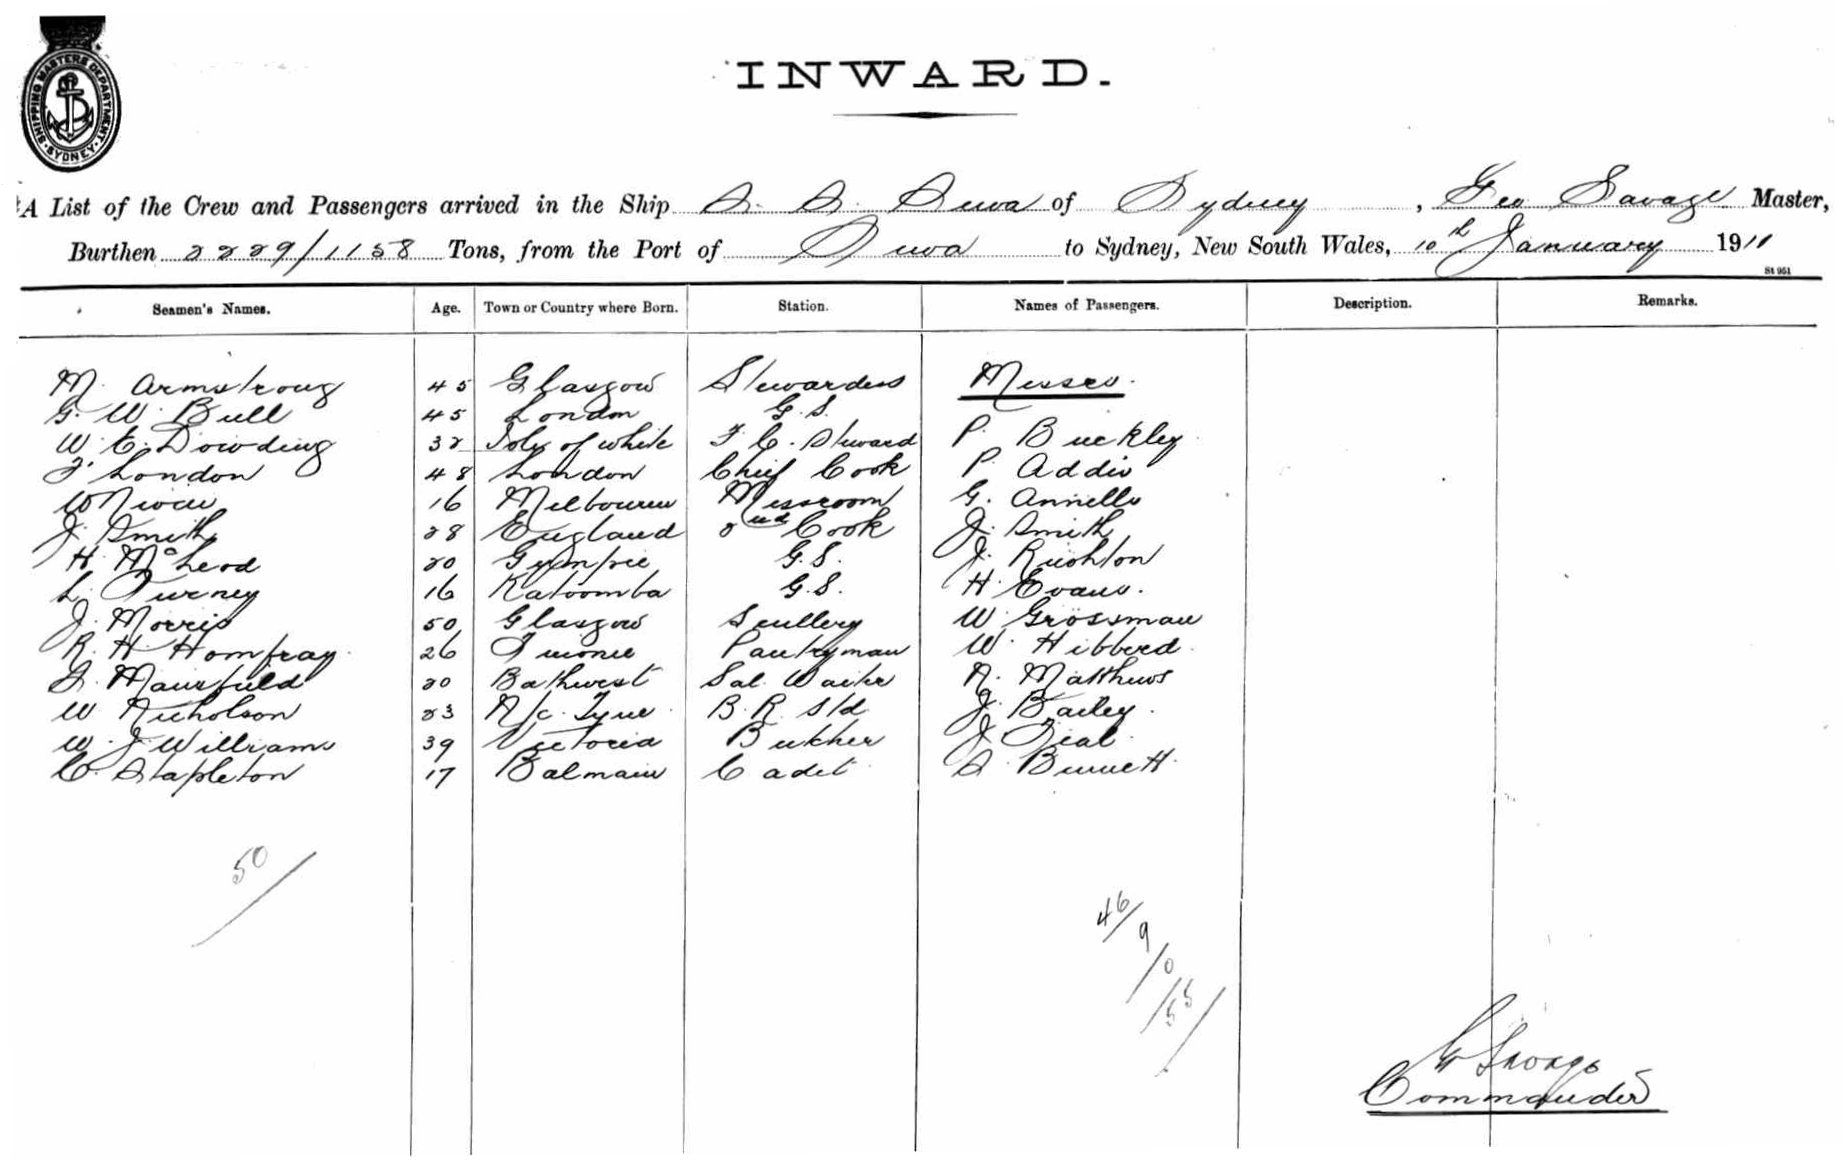 SHIPPING MASTERS DEPARTMENT. SYDNEY.
INWARD.
A List of the Crew and Passengers arrived in the Ship S. S. Suva of Sydney, Geo Savage Master,
Burthen 2229/1158 Tons, from the Port of Suva to Sydney, New South Wales, 10th January 1911
St 951
Seamen's Names. Age. Town or Country where Born. Station. Names of Passengers. Description. Remarks.
M. Armstrong 45 Glasgow Stewardess Messrs.
G. W. Bull 45 London G.S.
W. C. Dowding 32 Isle of White F. C. Steward P. Buckley
F. London 48 London Chief Cook P. Addis
W 16 Melbourne Messroom G. Annells
J. Smith 28 England 2nd Cook J. Smith
H. McLeod 20 Gympie G.S. J. Rushton
L. Turney 16 Katoomba G.S. H. Evans.
J. Morris 50 Glasgow Scullery W. Grossman
R. H. Homfray 26 Pantryman W. Hibberd.
S. Mansfield 20 Bathurst Sal. Waiter R. Matthews
W. Nicholson 23 N/c. Tyne B. R. Std J. Bailey.
W. J. Williams 39 Victoria Butcher J. Teal.
C. Stapleton 17 Balmain Cadet S. Burnett.
50
46/
9/
0/
55/
G Savage
Commander